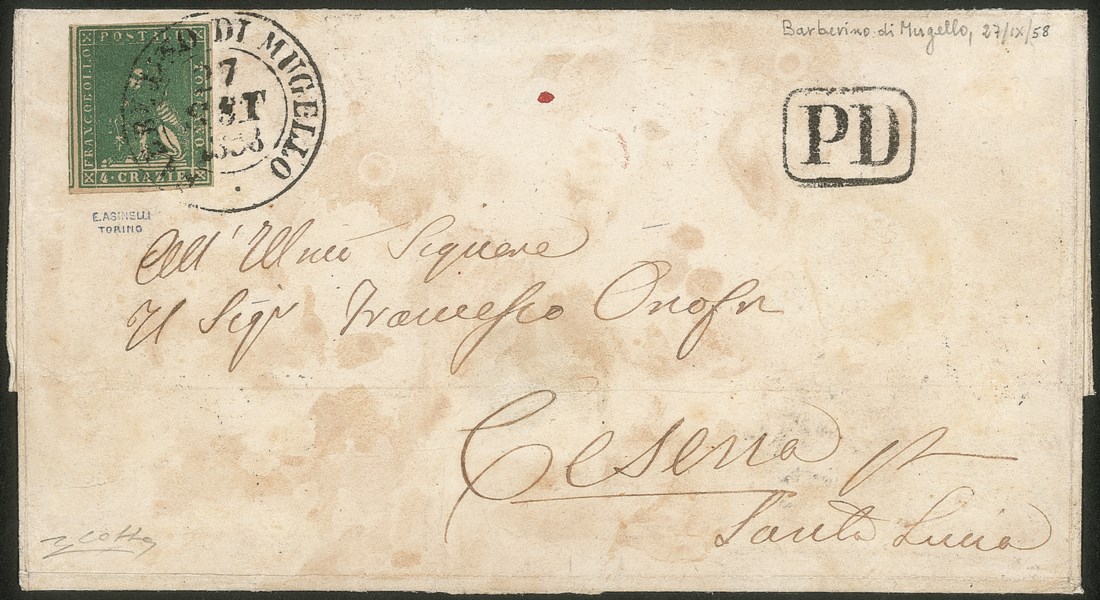 Barberino di Mugello, 27/IX/58
FRANCOBOLLO POSTALE TOSCANO
4 · CRAZIE
DI MUGELLO
27
SET
1858
PD
E. ASINELLI
TORINO
All' Illmo Signore
Il Sigr Francesco Onofri
Cesena pr
Santa Lucia